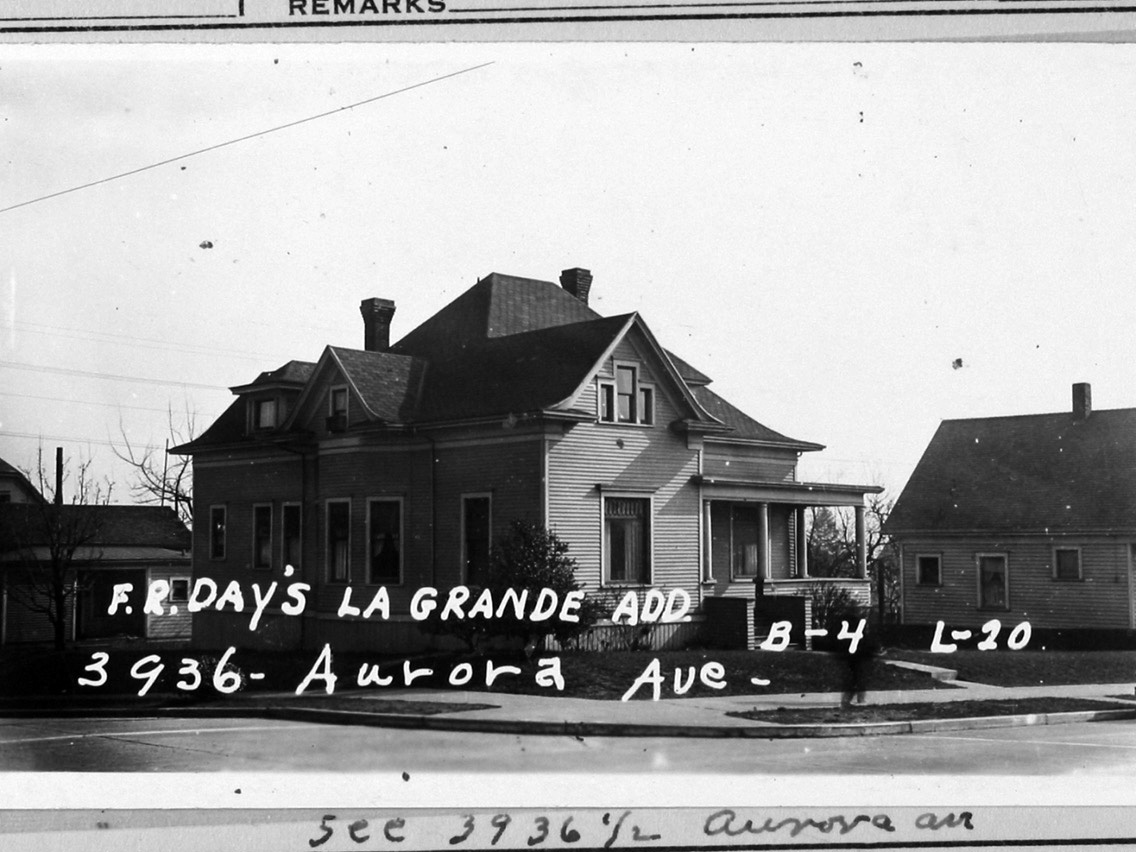 REMARKS
F.R. DAY'S LA GRANDE ADD. B-4 L-20.
3936- Aurora Ave-
See 3936 1/2 Aurora av